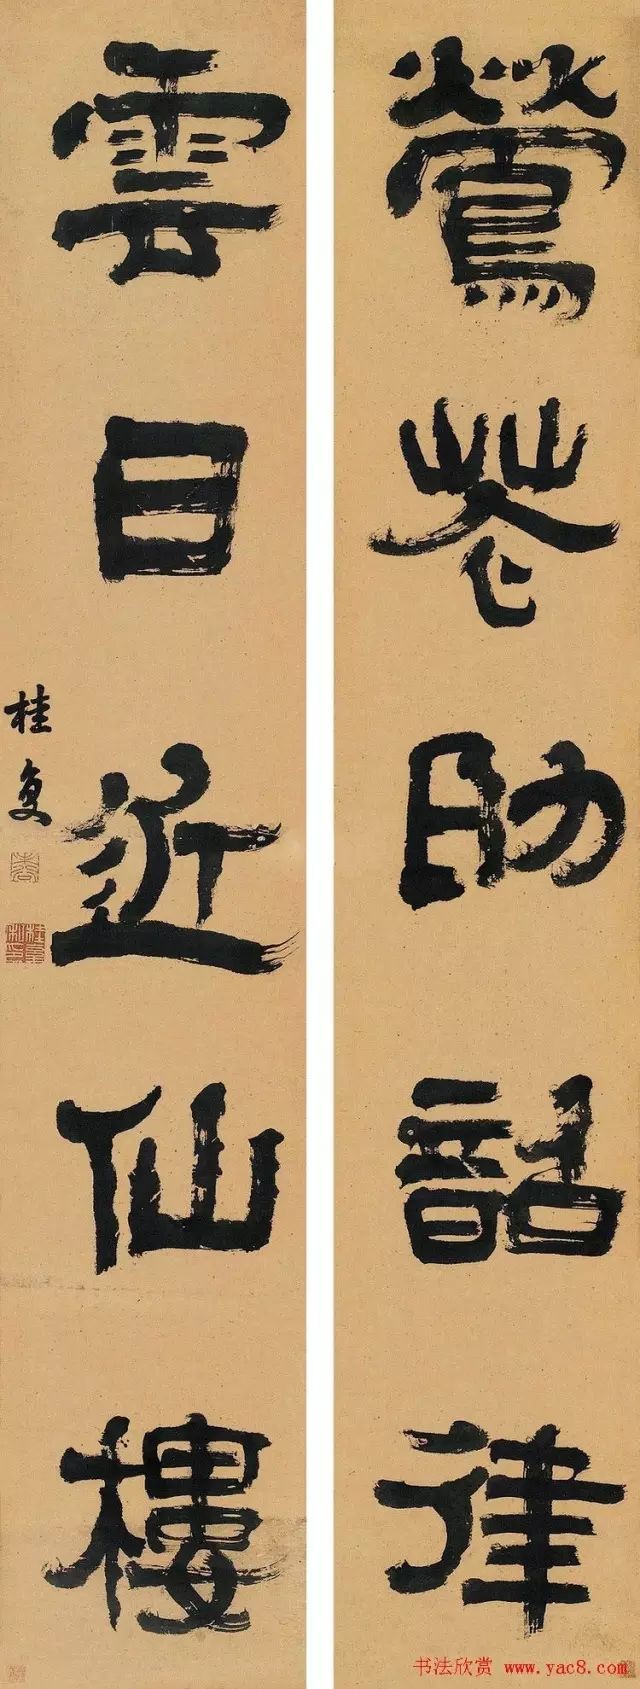 鶯花助韶律
雲日近仙樓
桂复
书法欣赏 www.yac8.com